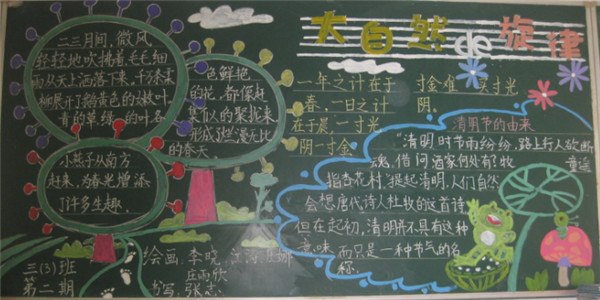 大自然de旋律
二三月间,微风
轻轻地吹拂着,毛毛细
雨从天上洒落下来,千万条柔
柳展开了鹅黄色的嫩叶
青的草,绿的叶,各
色鲜艳
的花,都像赶
集似的聚拢来,
形成了烂漫无比
的春天。
小燕子从南方
赶来,为春光增添
了许多生趣。
一年之计在于
春,一日之计
在于晨,一寸光
阴一寸金
寸金难买寸光
阴。
清明节的由来
“清明时节雨纷纷,路上行人欲断
魂,借问酒家何处有?牧
童遥
指杏花村,提起清明,人们自然
会想唐代诗人杜牧的这首诗
但在起初,清明并不具有这种
意味,而只是一种节气的名
称.
三(3)班
第二期
绘画:李晓、江涛
庄雨欣
书写:张志